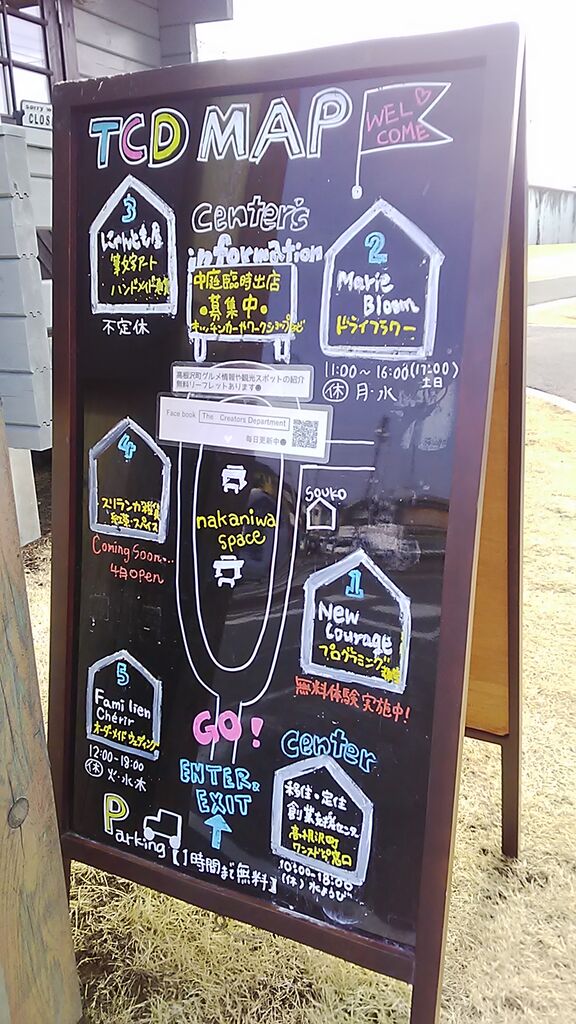 Sorry
CLOS
TCD MAP
WELCOME
3
にゃんとも屋
筆文字アート
ハンドメイド
不定休
center's
information
中庭臨時出店
●募集中●
キッチンカーやワークショップなど
2
Marie
Bloom
ドライフラワー
11:00~16:00(17:00)
土日
休 月・水
高根沢町グルメ情報や観光スポットの紹介
無料リーフレットあります●
Face book The Creators Department
毎日更新中●
4
スリランカ雑貨
紅茶・スパイス
Coming Soon...
4月open
nakaniwa
space
souko
1
New
Courage
プログラミング
無料体験実施中!
5
Familien
Chérir
オーダーメイドウェディング
12:00-18:00
休 火・水・木
GO!
ENTER&
EXIT
center
移住・定住
創業支援センター
高根沢町
ワンストップ窓口
10:00-18:00
(休)水ようび
Parking【1時間まで無料】